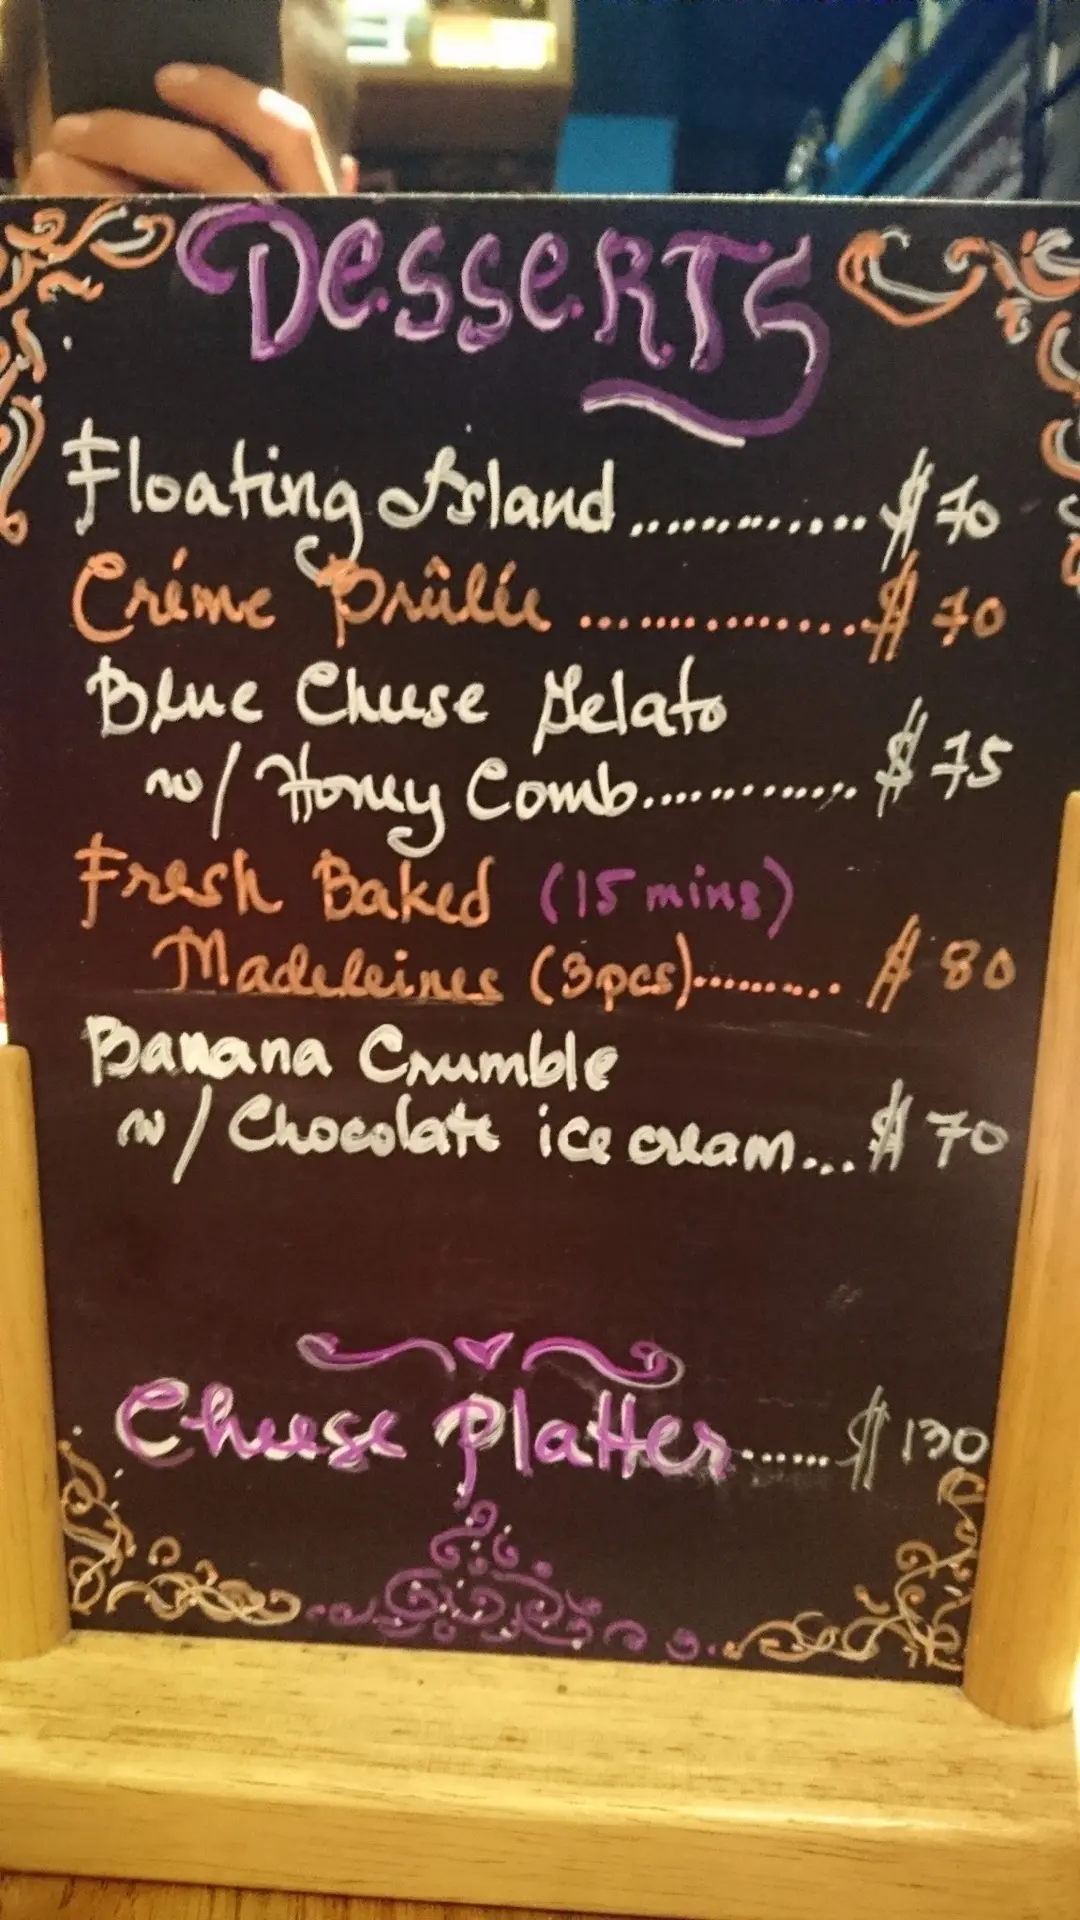 Desserts
Floating Island ............ $ 70
Créme Brûlée .............. $ 70
Blue Cheese Gelato
w/ Honey Comb............ $ 75
Fresh Baked (15 mins)
Madeleines (3pcs).......... $ 80
Banana Crumble
w/ Chocolate ice cream... $ 70
Cheese Platter...... $ 130